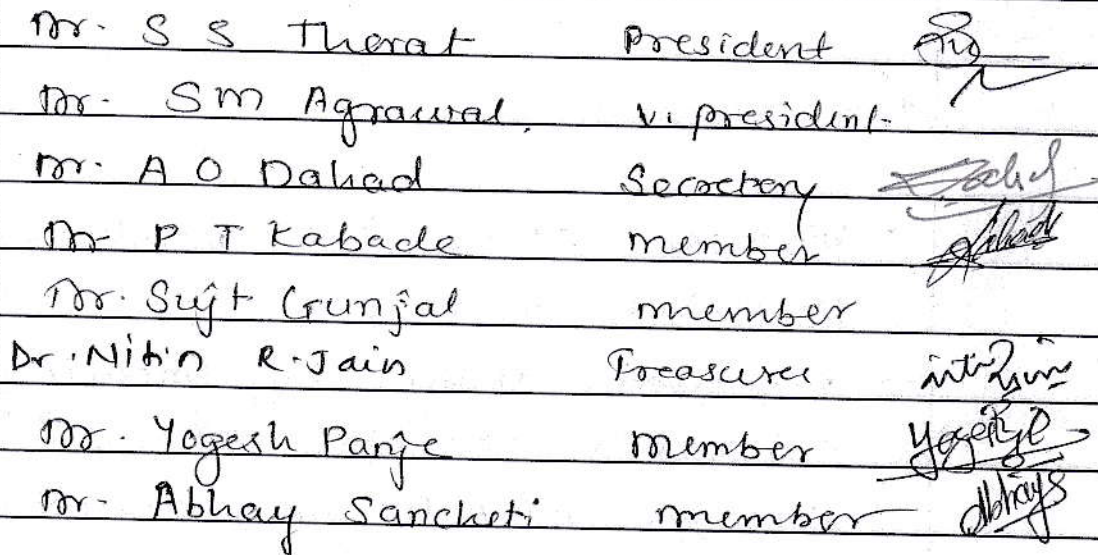 Dr. S S Thorat President
Dr. S M Agrawal, V. president.
Dr. A O Dahad Secretary
Dr P T Kabade member
Dr. Sujit Gunjal member
Dr. Nitin R. Jain Treasurer
Dr. Yogesh Panje member Yogesh
Dr. Abhay Sancheti member Abhays